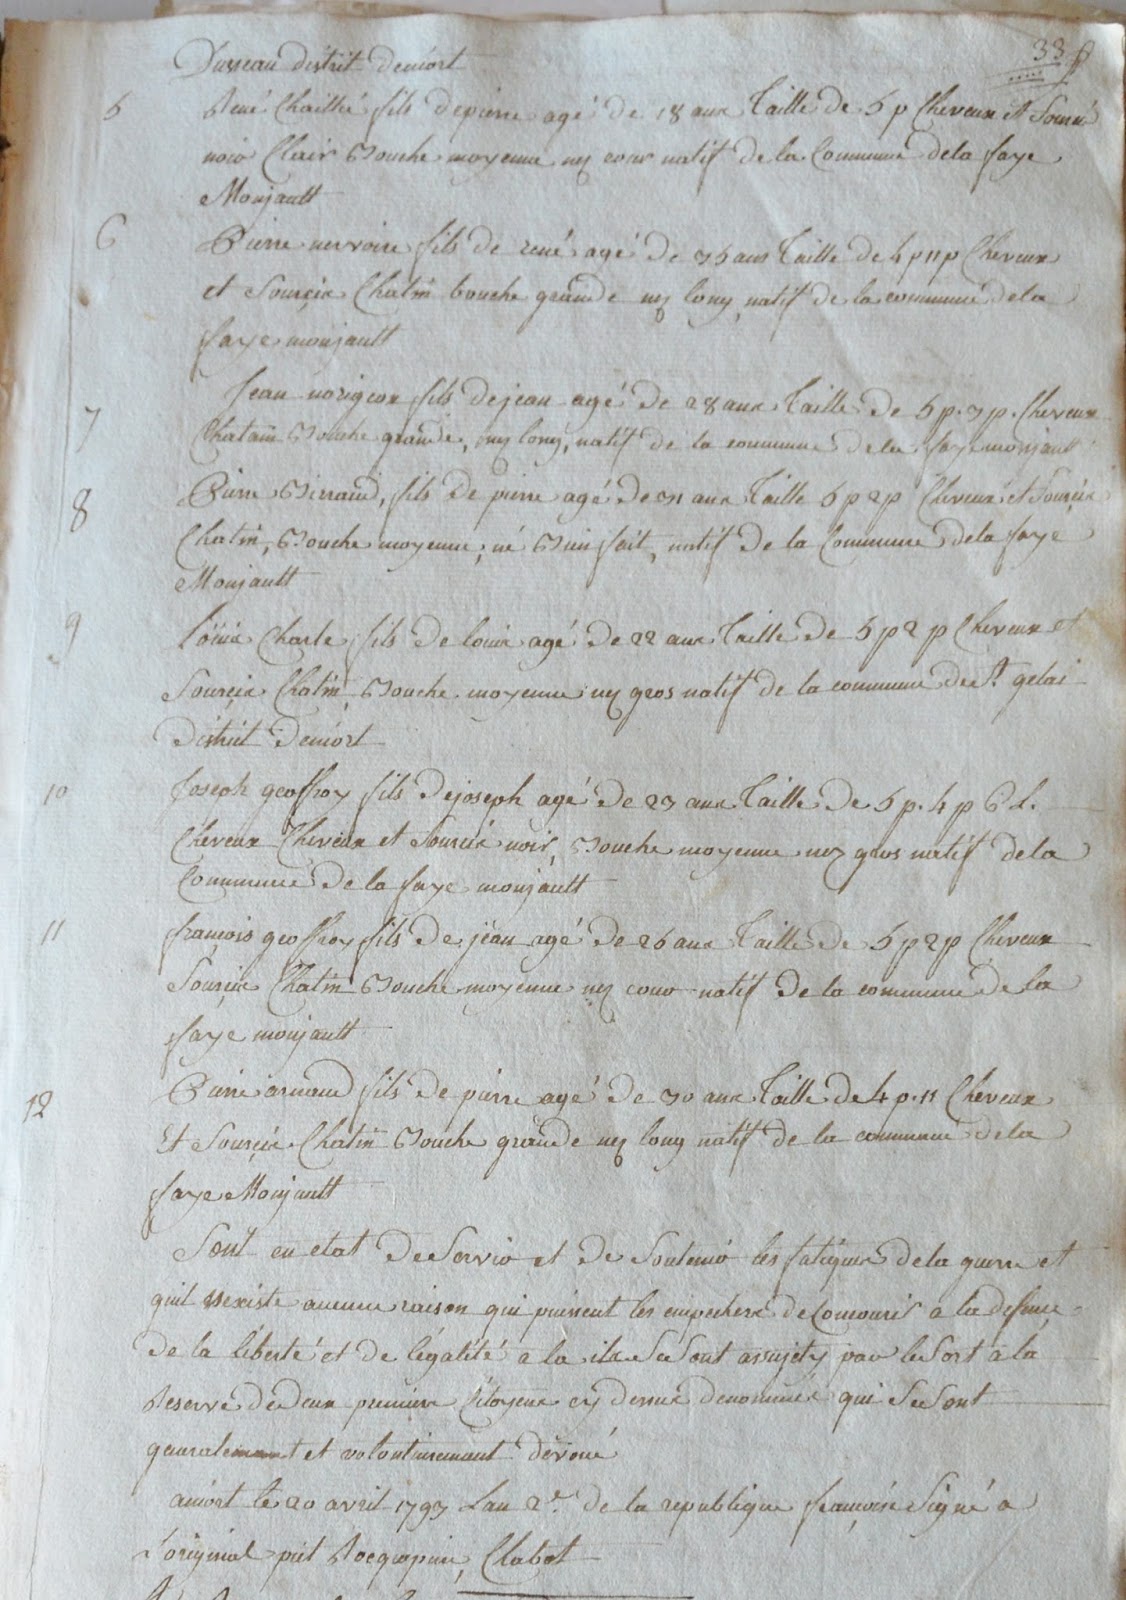 33
Dusseau district deniort
5 René Chaillié fils depierre agé de 18 ans Taille de 5 p Cheveux et Sourcis
noir Clair Bouche moyenne nez cour natif de la Commune dela faye
Monjault
6 Pierre fils de rené agé de 36 ans Taille de 4 p 11 p Cheveux
et Sourcis Chatin bouche grande nez long natif de la commune dela
faye monjault
7 Jean norigeon fils dejean agé de 28 ans Taille de 5 p. 3 p. Cheveux
Chatain Bouche grande, nez long, natif de la commune dela faye monjault
8 Pierre fils de pierre agé de 31 ans Taille 5 p 2 p Cheveux et Sourcis
Chatin, Bouche moyenne, né Bien fait, natif de la Commune dela faye
Monjault
9 Loüis Charle fils de louis agé de 22 ans Taille de 5 p 2 p Cheveux et
Sourcis Chatin, Bouche moyenne nez gros natif de la commune de St. gelai
District Deniort
10 Joseph geoffroy fils dejoseph agé de 23 ans Taille de 5 p. 4 p 6 L.
Cheveux Cheveux et Sourcis noir, Bouche moyenne nez gros natif dela
Commune De la faye monjault
11 françois geoffroy fils de jëan agé de 26 ans Taille de 5 p 2 p Cheveux
Sourcis Chatin Bouche moyenne nez cour natif de la commune de la
faye monjault
12 Pierre arnaud fils de pierre agé de 30 ans Taille de 4 p. 11 Cheveux
Et Sourcis Chatin Bouche grande nez long natif de la commune dela
faye Monjault
Sont en etat deServir et de Soutenir les fatigues dela guerre et
quil nexiste aucune raison qui puissent les empecher de Concourir a la defense
de la liberté et de légalité a la ils SeSont assujety par leSort a la
Reserve de deux premiers Citoyens cy dessus denommés qui SeSont
et volontairement dévoué
aniort le 20 avril 1793 Lan 2e. de la republique françoise Signé a
Loriginal piet Clabat